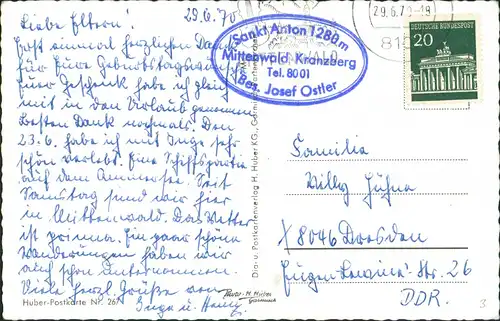 29.6.70
Liebe Eltern!
Erst einmal herzlichen Dank
für Eure Geburtstagskarte.
Euer Geschenk habe ich gleich
mit in den Urlaub genommen.
Besten Dank nochmals. Den
23.6. habe ich mit Inge sehr
schön verlebt. Eine Schiffspartie
auf dem Ammersee. Seit
Samstag sind wir hier
in Mittenwald. Das Wetter
ist prima. Ein paar schöne
Wanderungen haben wir
auch schon unternommen.
Viele herzl. Grüße von
Inge u. Heinz
Huber-Postkarte Nr. 267
Photo-H. Huber
Garmisch
Dia- u. Postkartenverlag H. Huber KG.,
Sankt Anton 1280m
Mittenwald-Kranzberg
Tel. 8001
Bes. Josef Ostler
29.6.70-18
DEUTSCHE BUNDESPOST
20
Familie
Willy
X 8046 Dresden
Eugen- Str. 26
DDR.
3